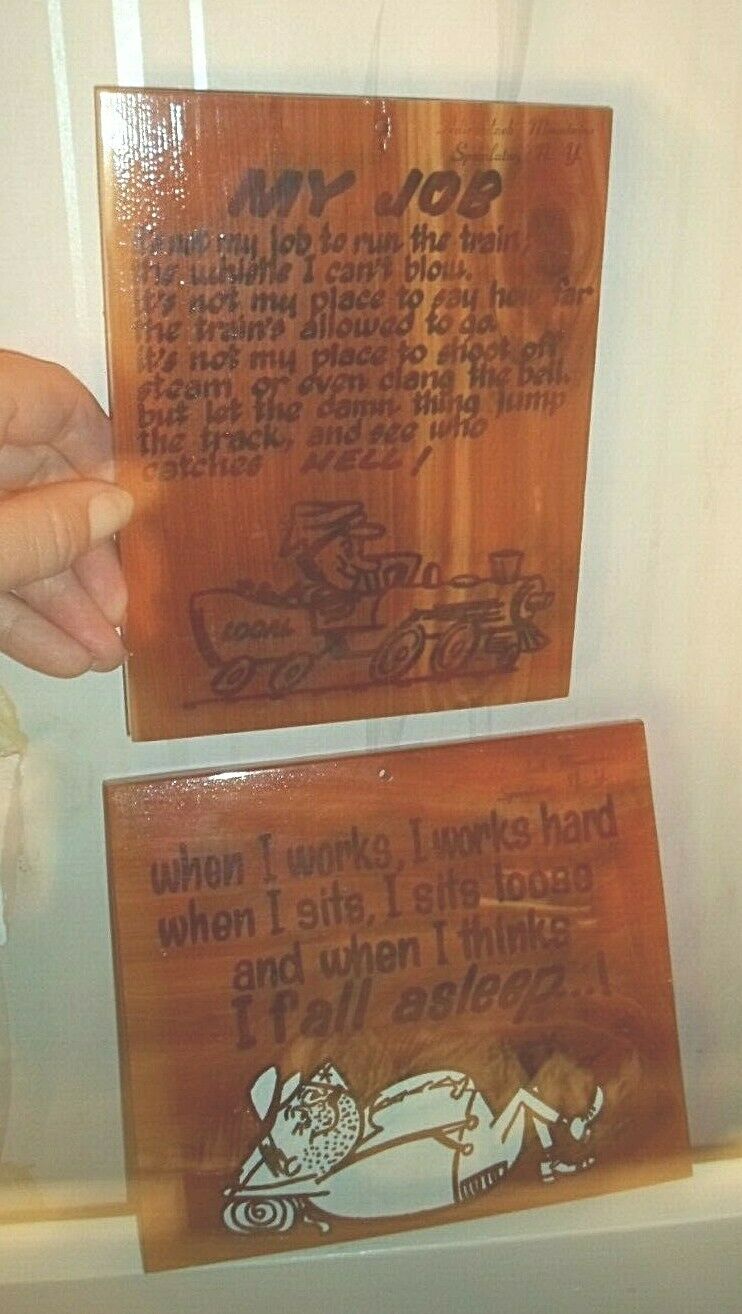 Mountains
Speculator, N. Y.
MY JOB
my job to run the train,
the whistle I can't blow.
It's not my place to say how far
the train's allowed to go.
It's not my place to shoot off
steam or even clang the bell.
but let the damn thing jump
the track, and see who
catches HELL!
LOCAL
when I works, I works hard
when I sits, I sits loose
and when I thinks
I fall asleep..!